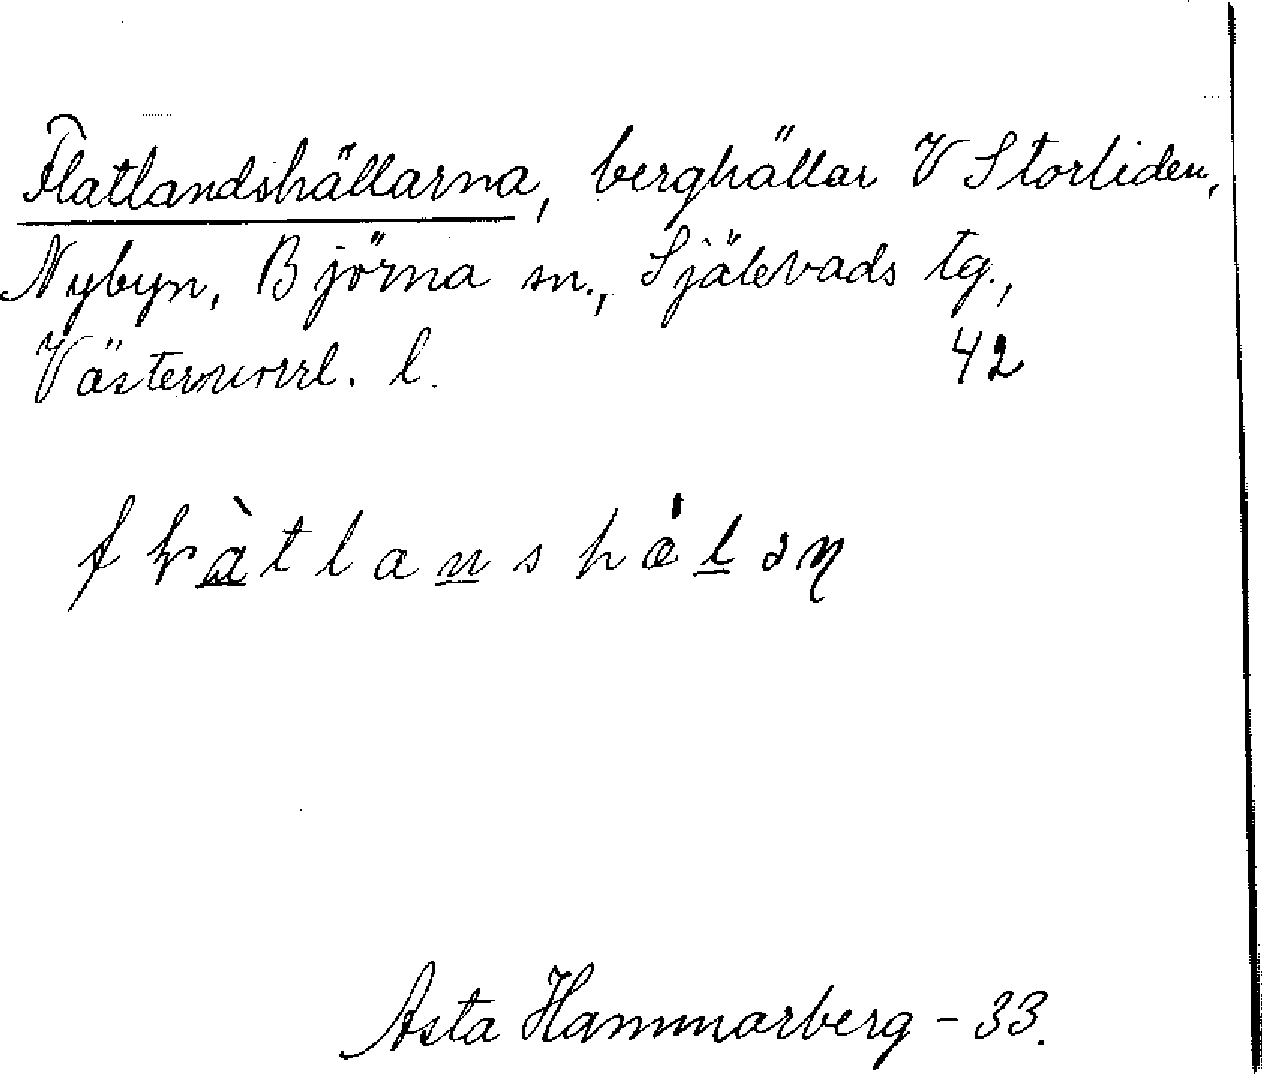 Flatlandshällarna, berghällar V Storliden,
Nybyn, Björna sn., Själevads tg.,
Västernorrl. l. 42
Asta Hammarberg - 33.